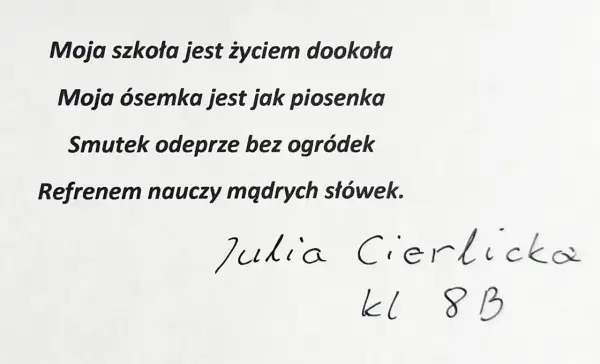 Moja szkoła jest życiem dookoła
Moja ósemka jest jak piosenka
Smutek odeprze bez ogródek
Refrenem nauczy mądrych słówek.
Julia Cierlicka
kl 8B